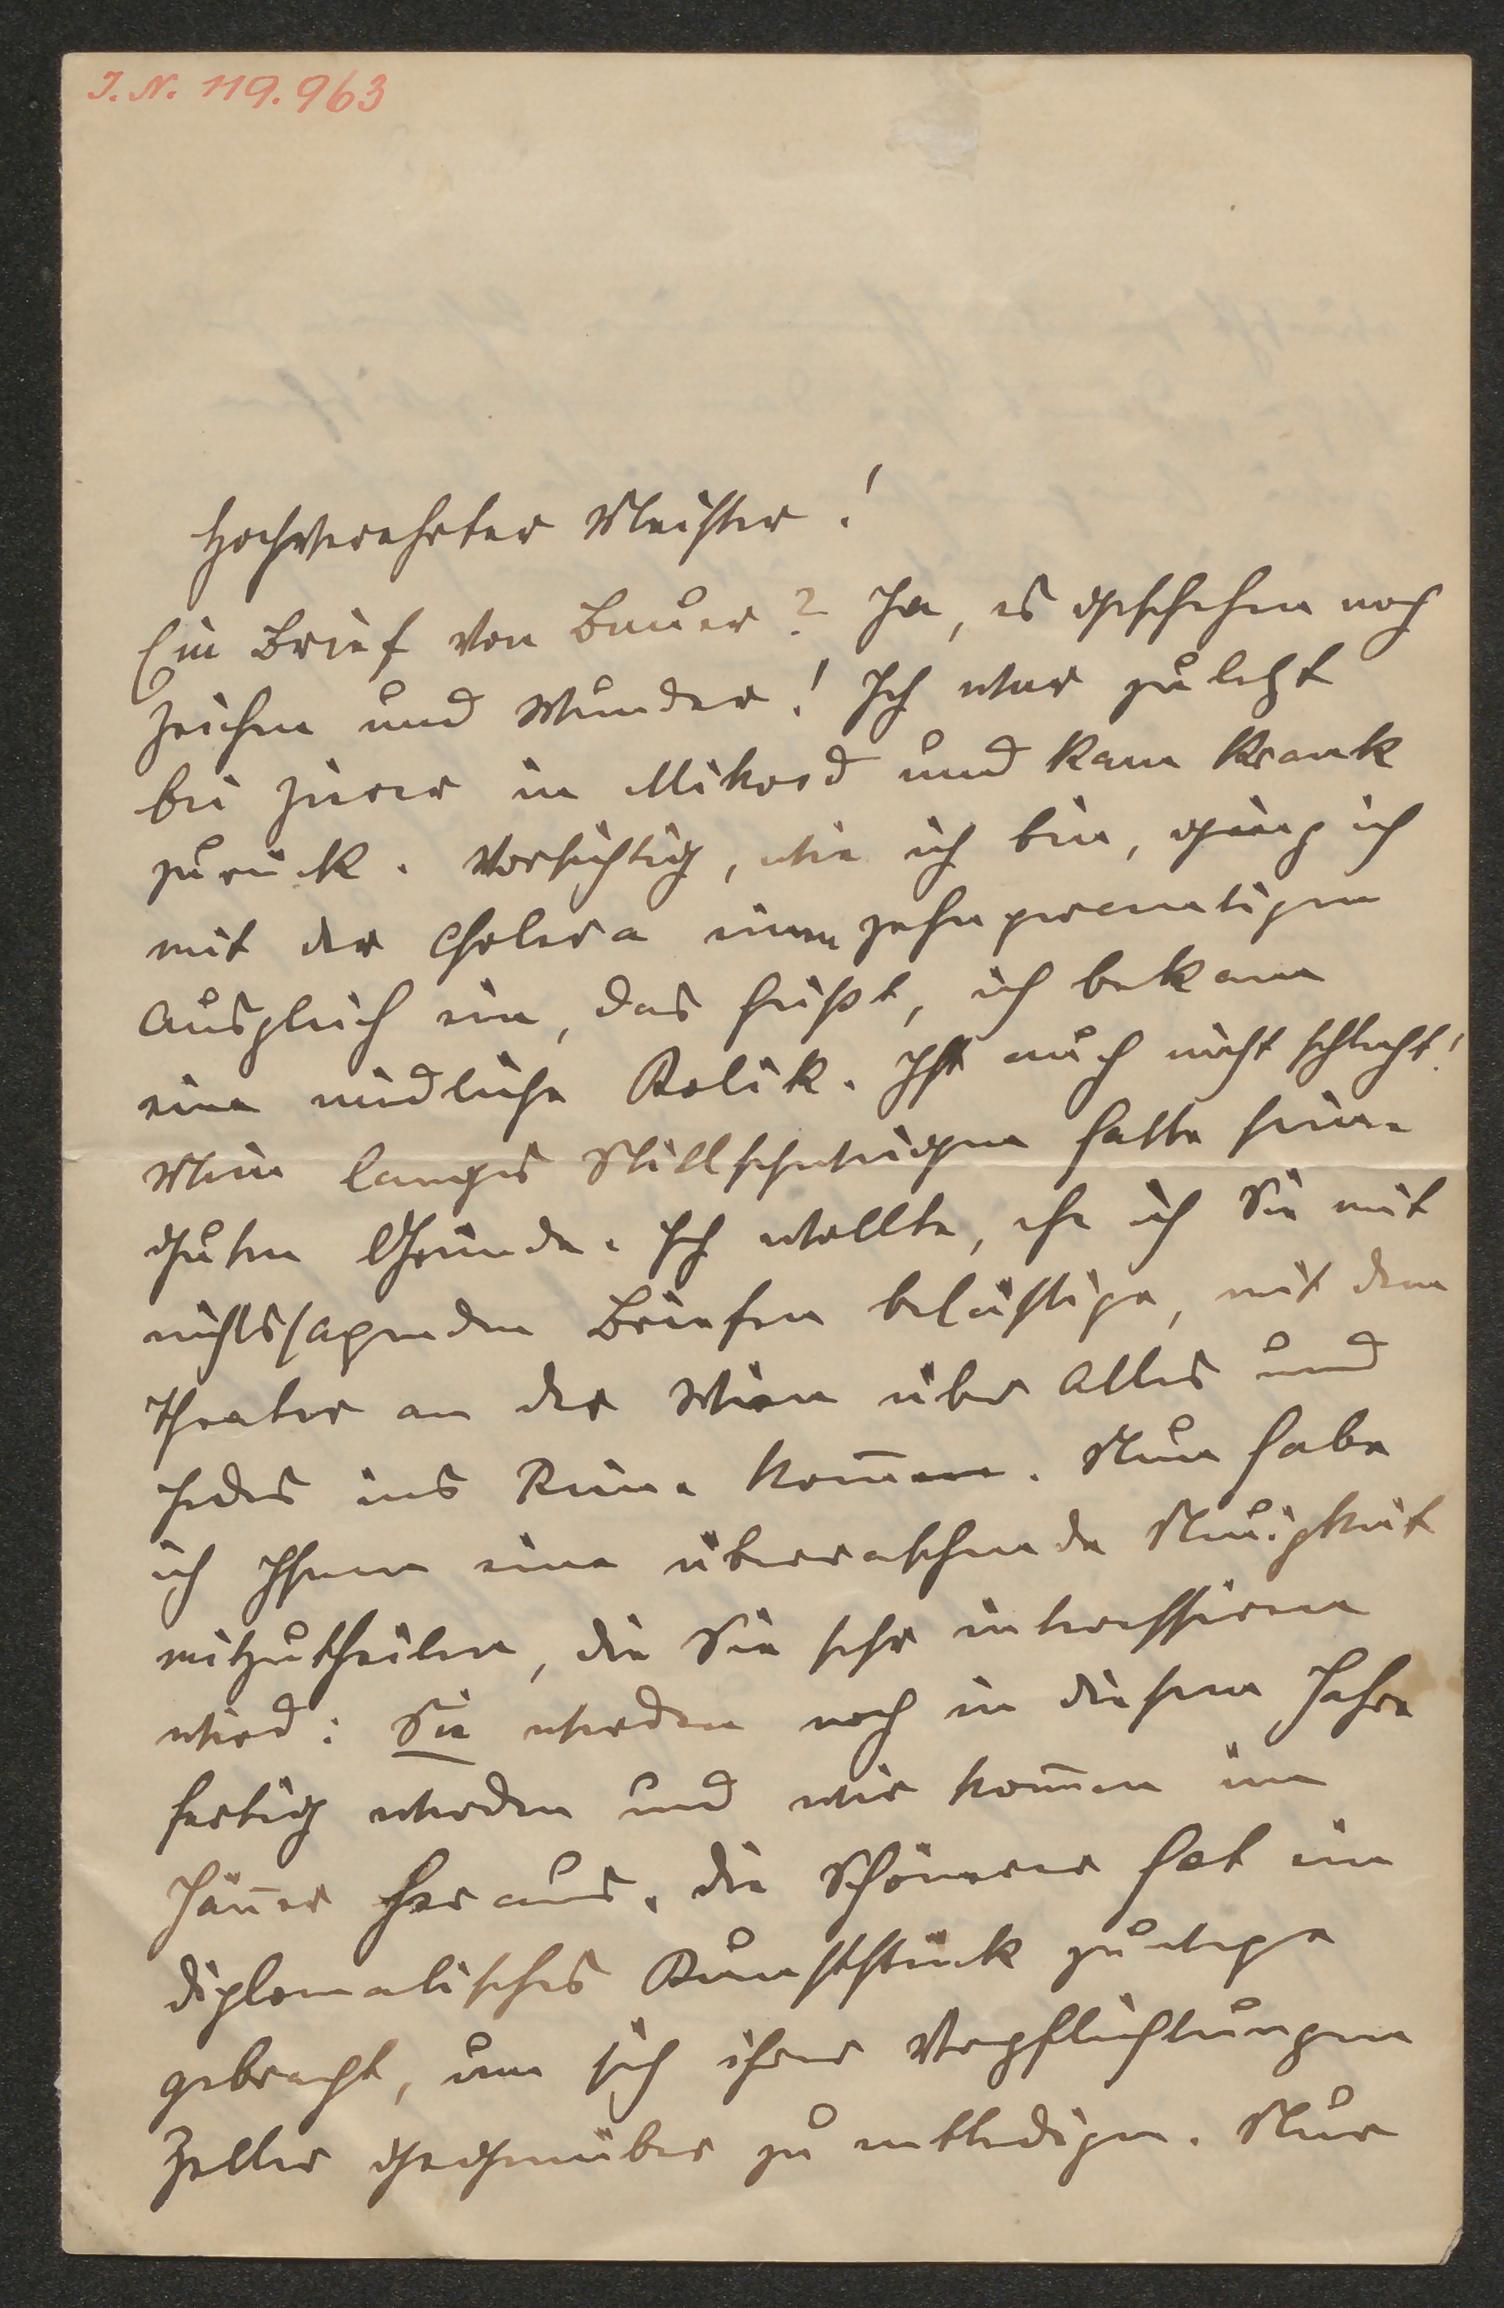 J. N. 119.963
Hochverehrter Meister!
Ein Brief von Bauer? Ja, es geschehen noch
Zeichen und Wunder! Ich war zuletzt
bei Zierer in Mikosd und kam krank
zurück. Vorsichtig, wie ich bin, ging ich
mit der Cholera einen zehnprocentigen
Ausgleich ein, das heißt, ich bekam
eine niedliche Kolik. Ist auch nicht schlecht!
Mein langes Stillschweigen hatte seine
guten Gründe. Ich wollte, ehe ich Sie mit
nichtssagenden Briefen belästige, mit dem
Theater an der Wien über Alles und
Jedes ins Reine kom̄en. Nun habe
ich Ihnen eine überraschende Neuigkeit
mitzutheilen, die Sie sehr interessiren
wird: Sie werden noch in diesem Jahre
fertig werden und wir kom̄en im
Jän̄er heraus. Die Schönerer hat ein
diplomatisches Kunststück zuwege
gebracht, um sich ihrer Verpflichtungen
Zeller gegenüber zu entledigen. Nur